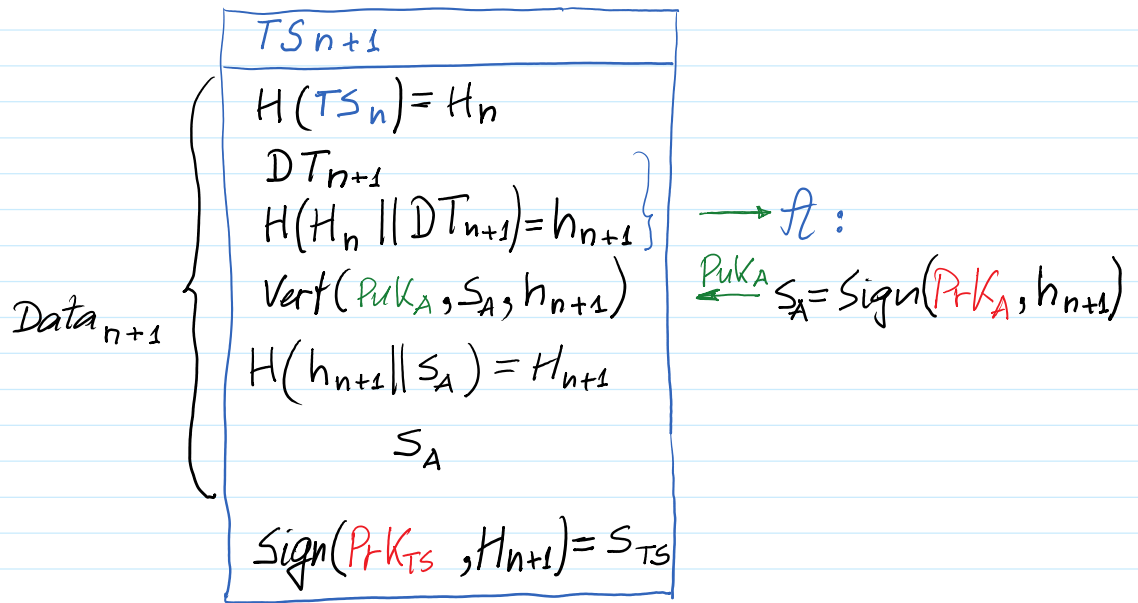 TS n+1
H(TS n) = Hn
DT n+1
H(Hn || DT n+1) = h n+1
Verf(PuK A, S A, h n+1)
H(h n+1 || S A) = H n+1
S A
Sign(PrK TS, H n+1) = S TS
Data n+1
A :
PuK A
S A = Sign(PrK A, h n+1)